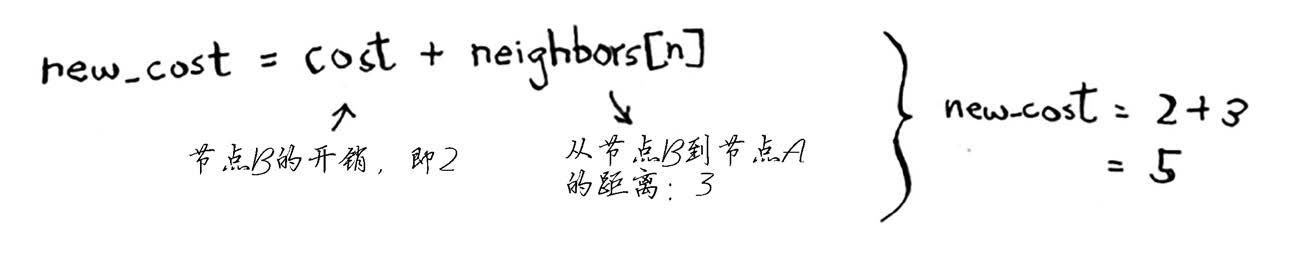 new_cost = cost + neighbors[n]
节点B的开销，即2
从节点B到节点A
的距离：3
new_cost = 2+3
= 5